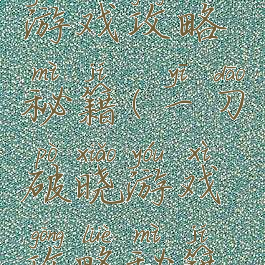 游戏攻略
mì jí yī dāo
秘籍(一刀
pò xiǎo yóu xì
破晓游戏
gōng lüè mì jí
攻略秘籍